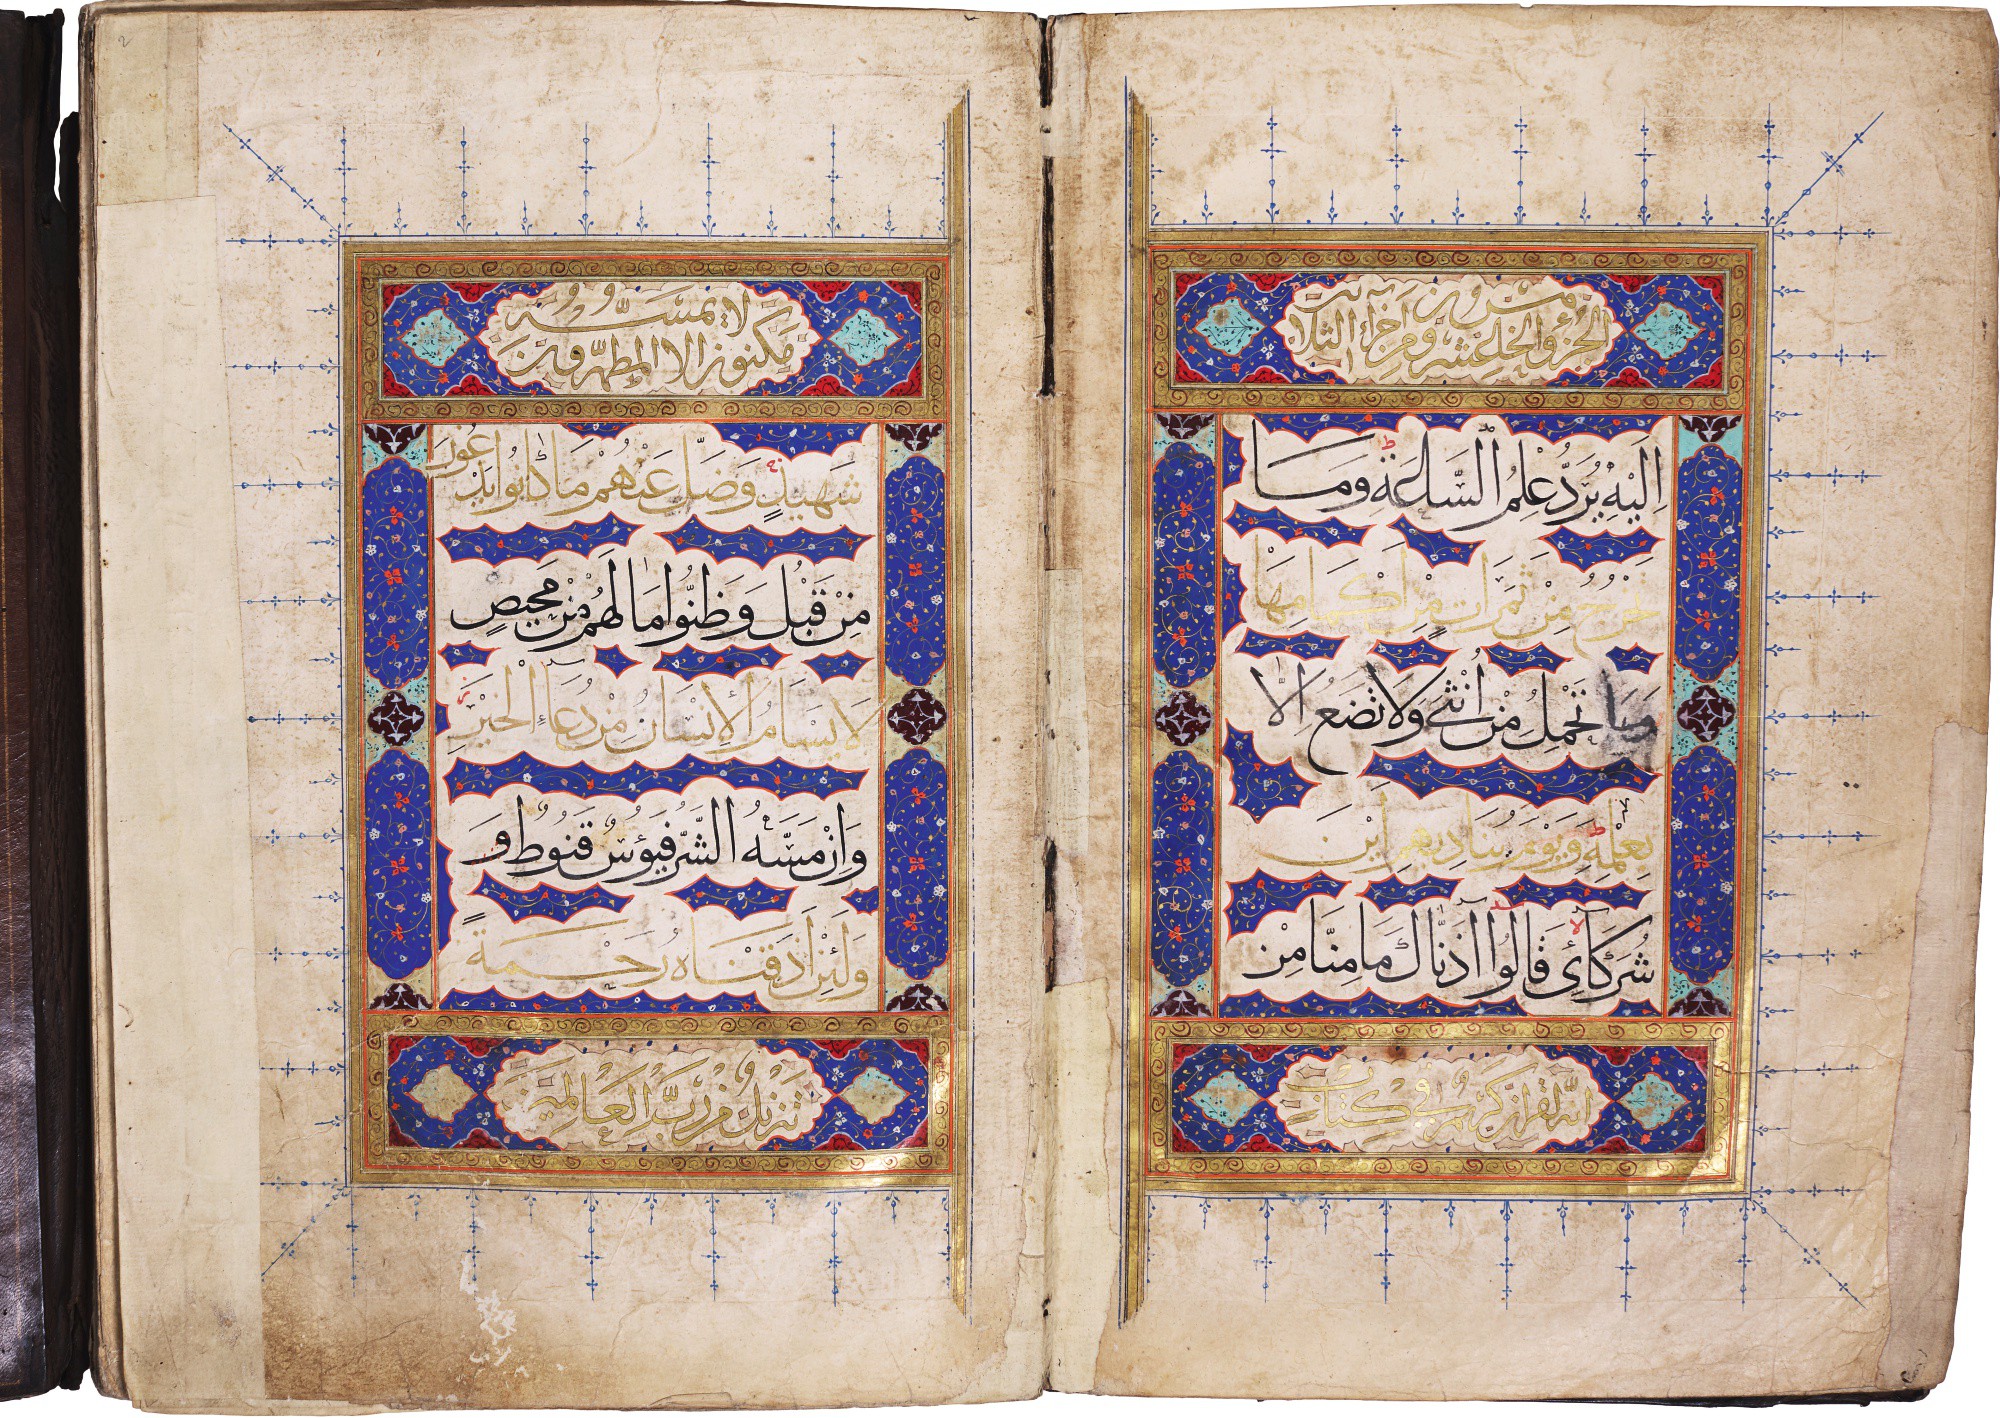 الجزؤ والخامس عشرون من اجزاء الثلاثين
اِلَيْهِ يُرَدُّ عِلْمُ السَّاعَةِ وَمَا
تَخْرُجُ مِنْ ثَمَرَاتٍ مِنْ اَكْمَامِهَا
وَمَا تَحْمِلُ مِنْ اُنْثٰى وَلَا تَضَعُ اِلَّا
بِعِلْمِهٖ وَيَوْمَ يُنَادِيهِمْ اَيْنَ
شُرَكَائِي قَالُوا اٰذَنَّاكَ مَا مِنَّا مِنْ
انه لقران كريم في كتاب
مكنون لا يمسه الا المطهرون
شَهِيدٍ وَضَلَّ عَنْهُمْ مَا كَانُوا يَدْعُونَ
مِنْ قَبْلُ وَظَنُّوا مَا لَهُمْ مِنْ مَحِيصٍ
لَا يَسْاَمُ الْاِنْسَانُ مِنْ دُعَاءِ الْخَيْرِ
وَاِنْ مَسَّهُ الشَّرُّ فَيَؤُسٌ قَنُوطٌ وَ
وَلَئِنْ اَذَقْنَاهُ رَحْمَةً
تنزيل من رب العالمين